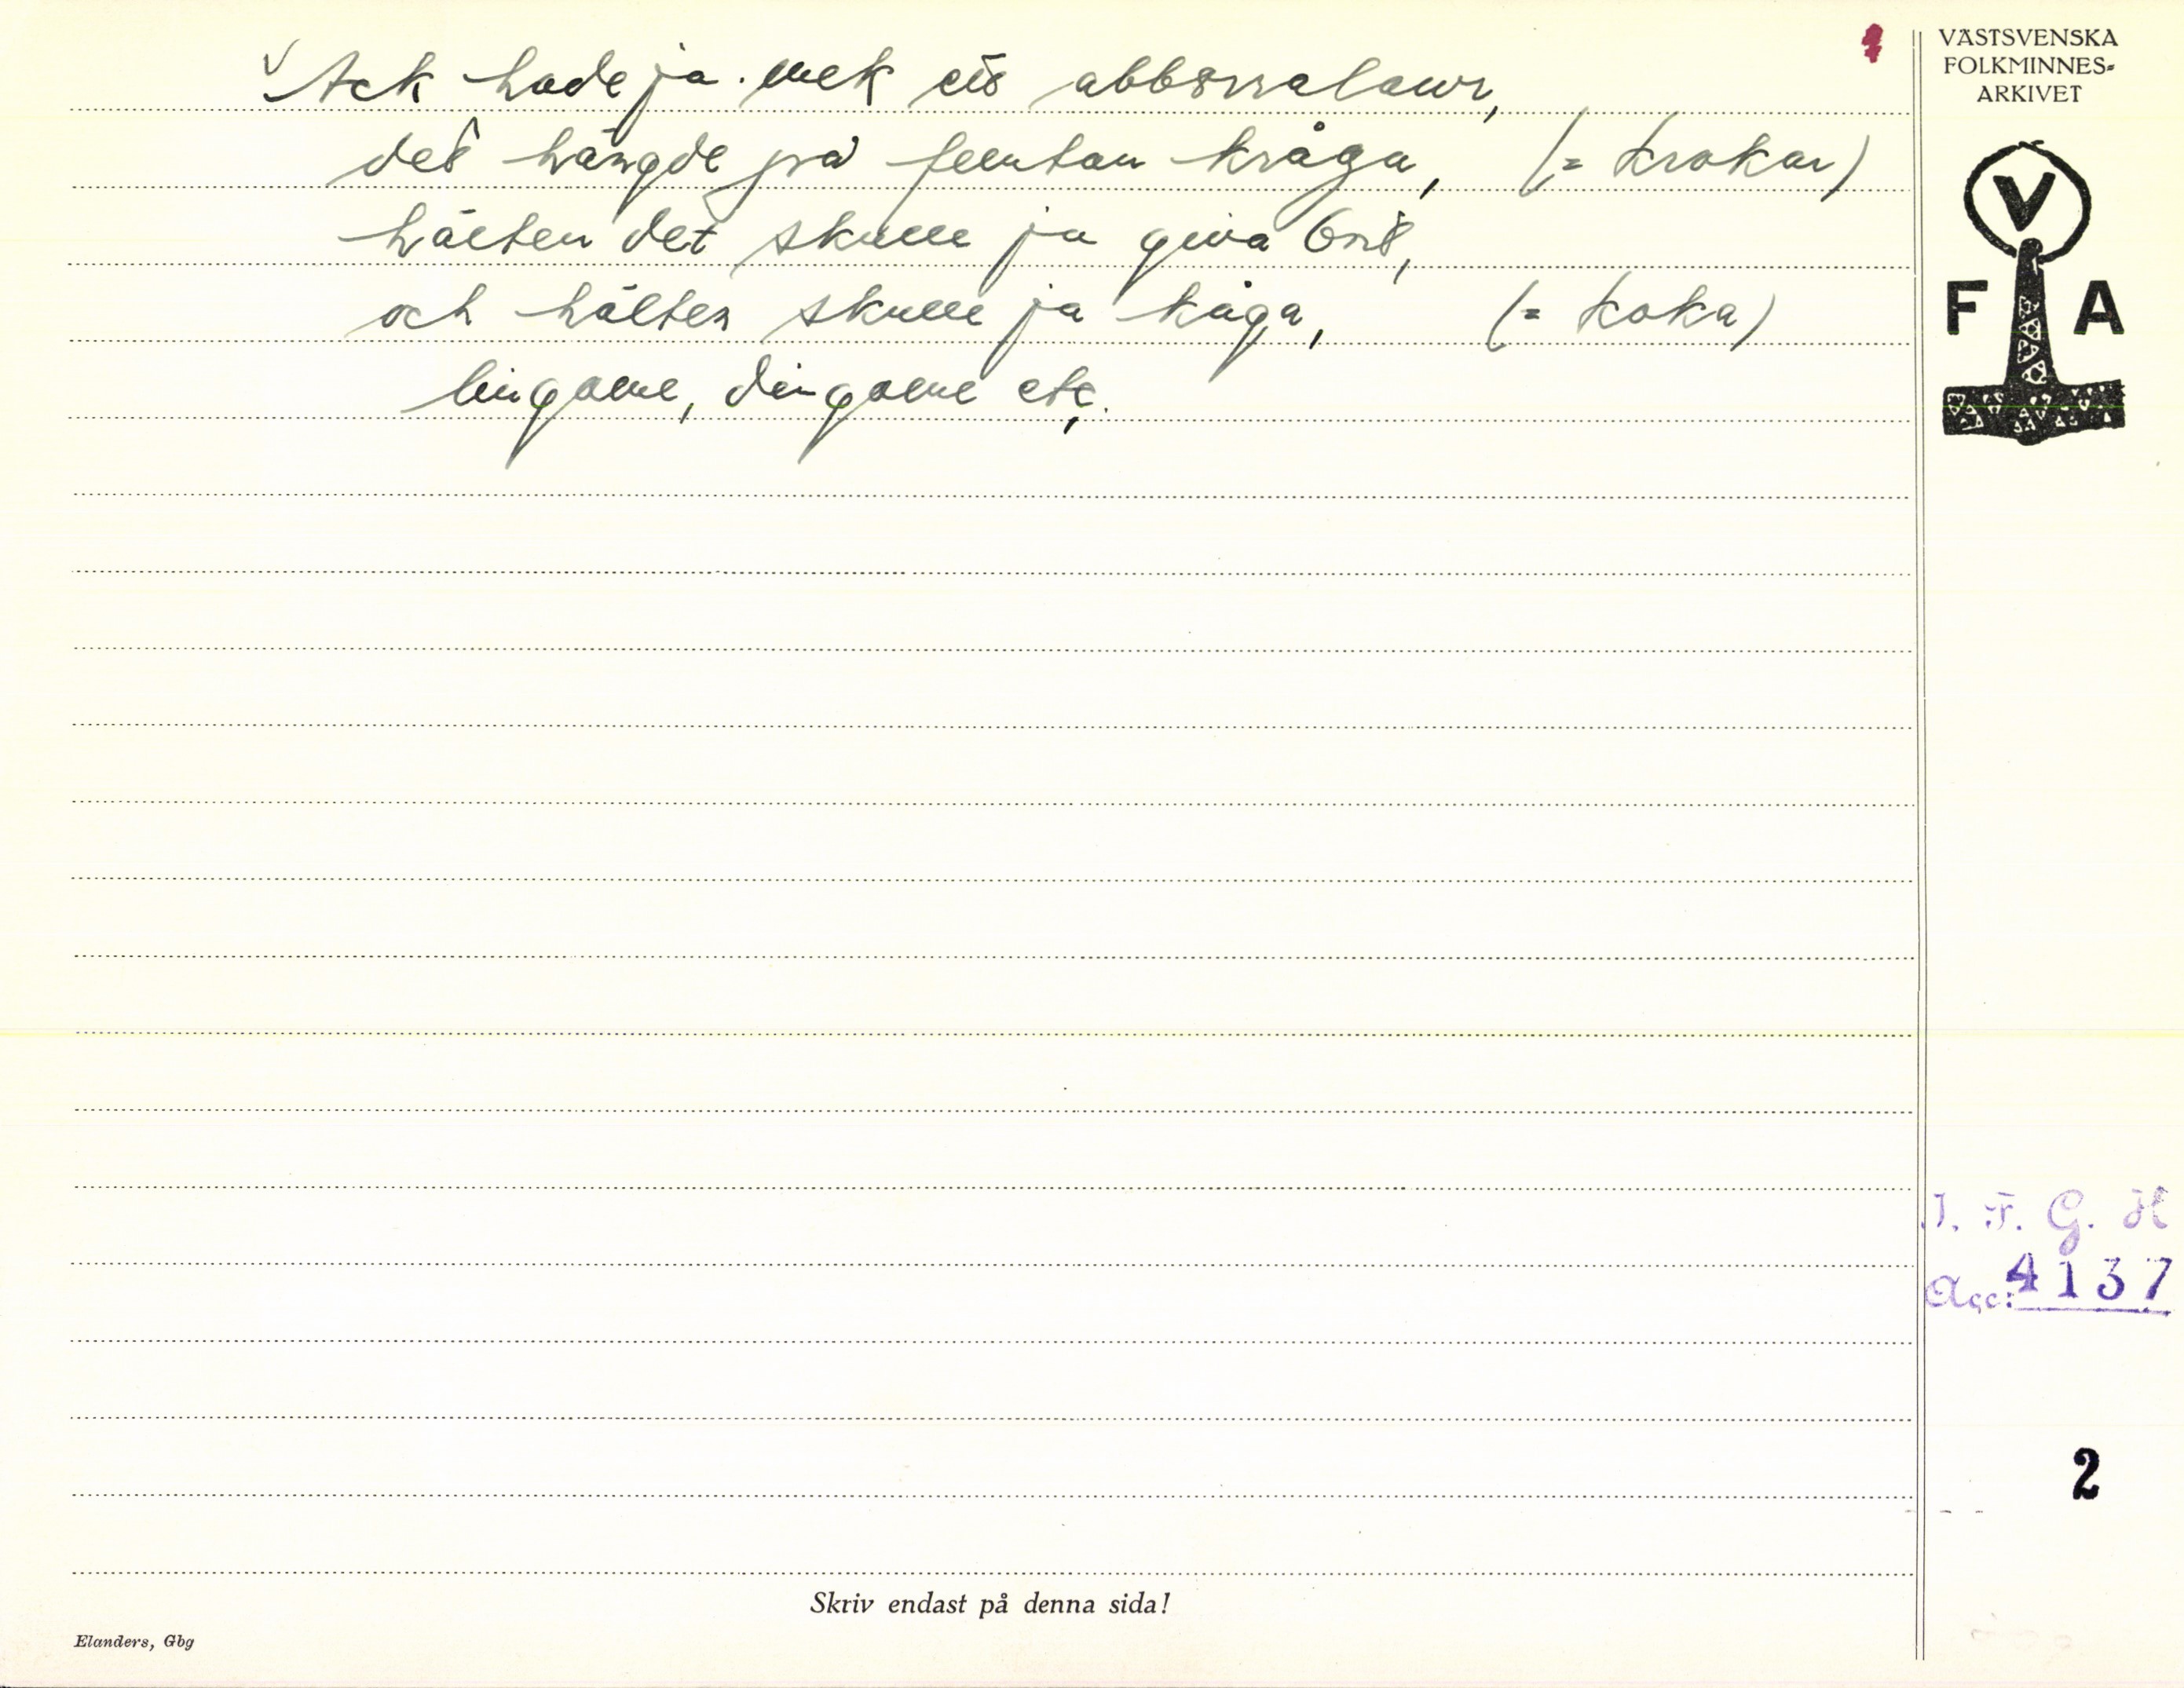 Ack hade ja mek ett abborralaur,
det hängde på femtan kråga, (= krokar)
hälten det skulle ja giva bort,
och hälten skulle ja kåga, (= koka)
lingom, dingom etc.
VÄSTSVENSKA
FOLKMINNES-
ARKIVET
V
F A
I. F. G. H
Acc: 4137
2
Skriv endast på denna sida!
Elanders, Gbg